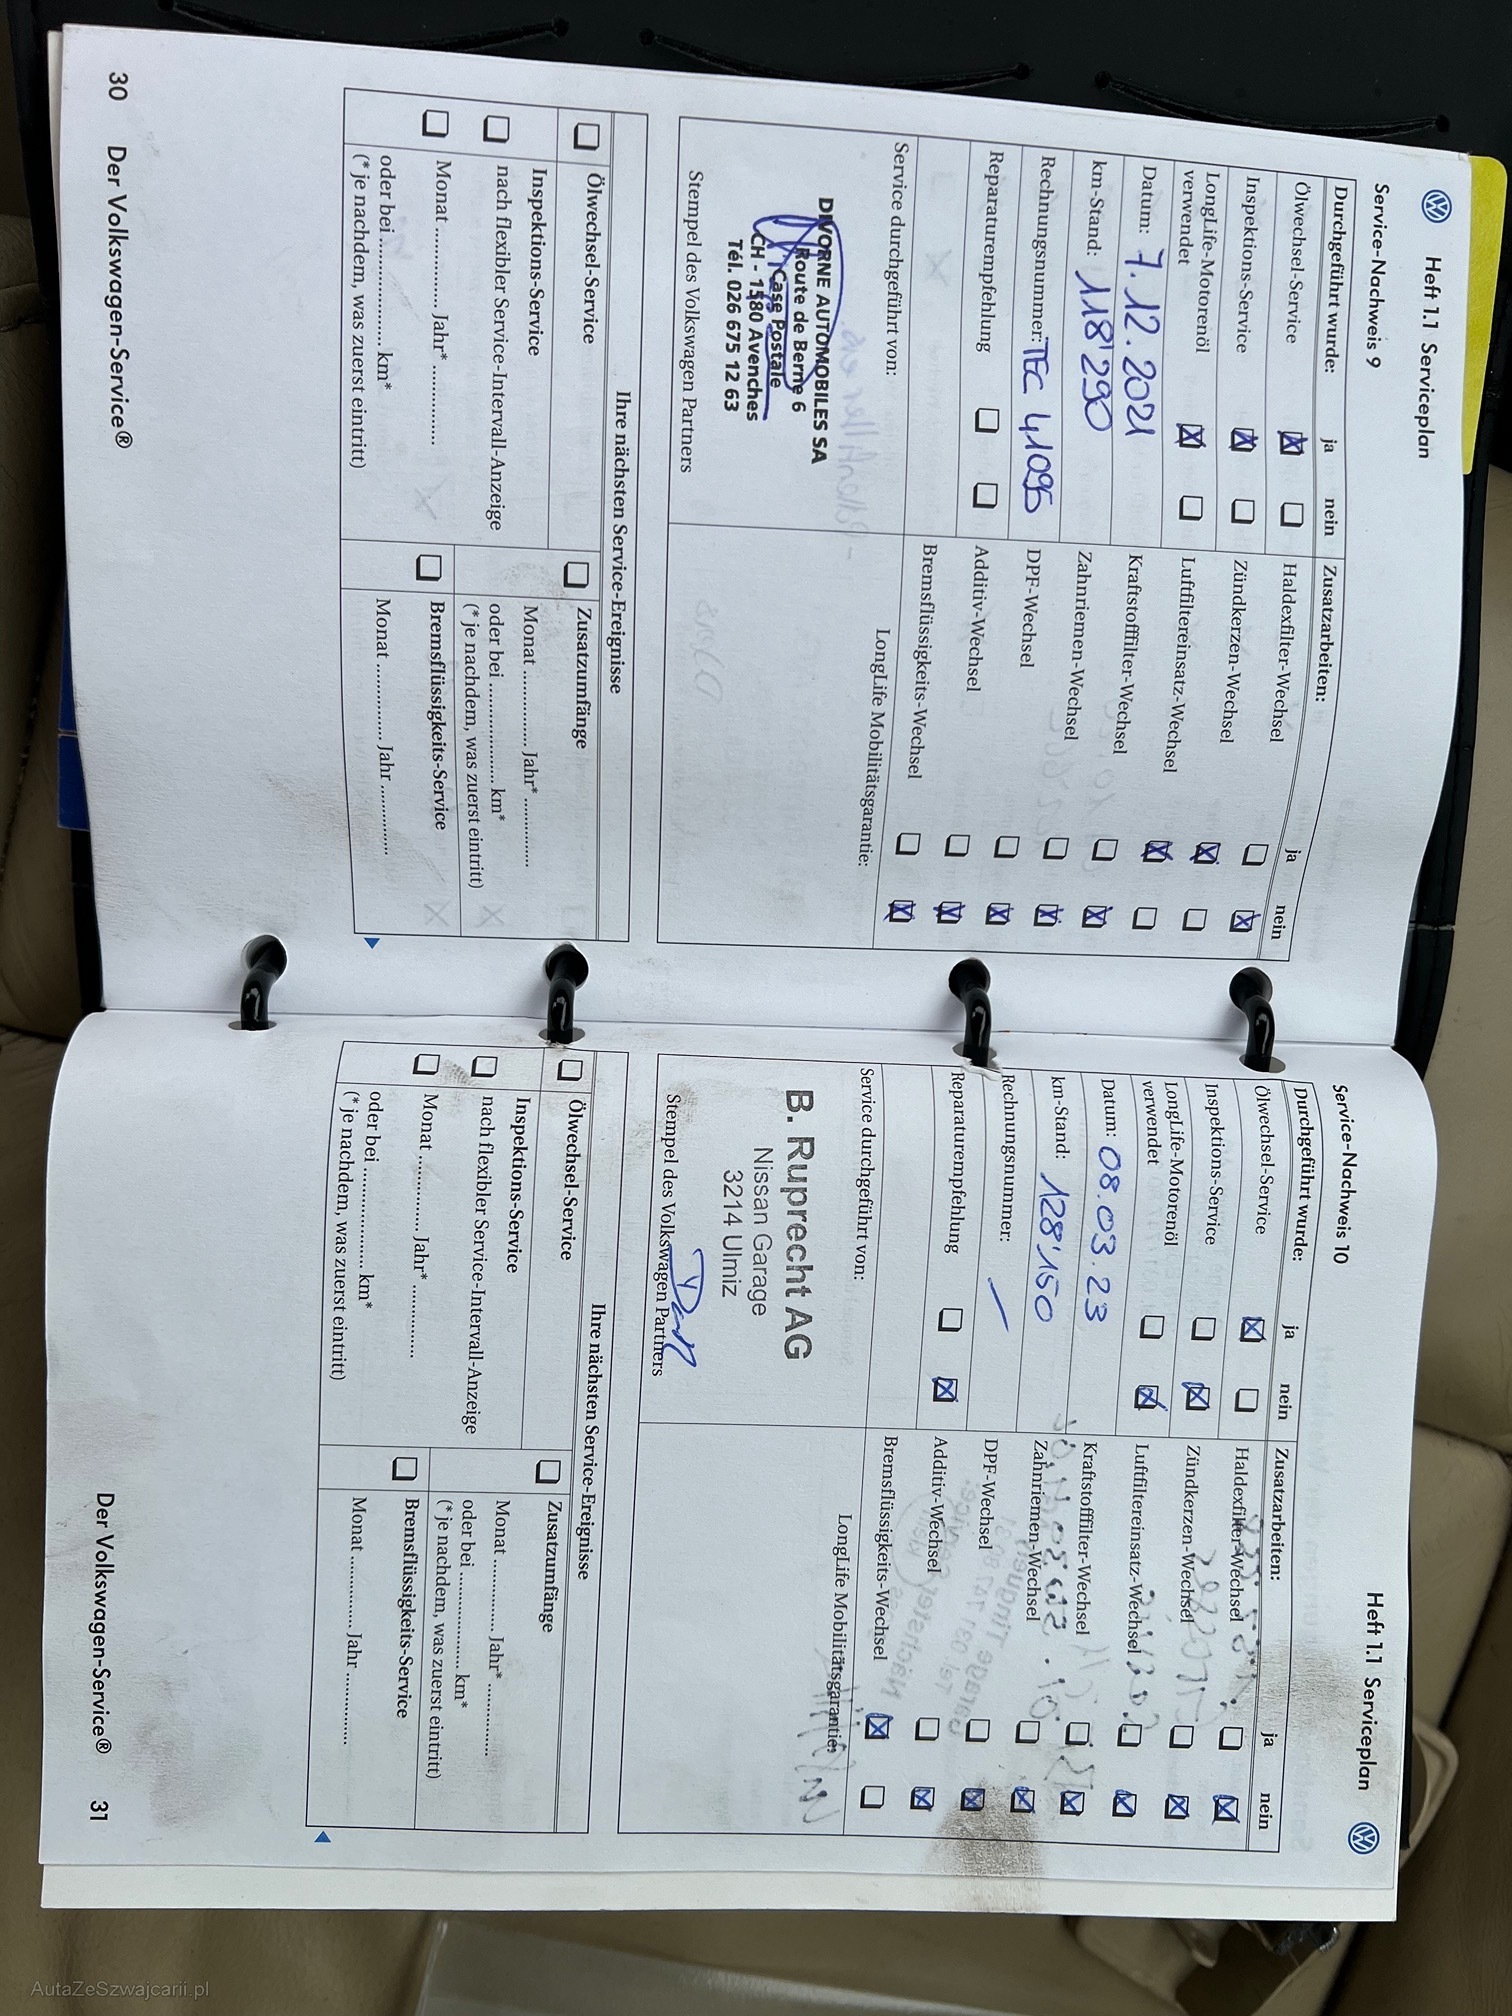 Heft 1.1 Serviceplan
Service-Nachweis 9
Durchgeführt wurde: ja nein
Ölwechsel-Service
Inspektions-Service
LongLife-Motorenöl
verwendet
Datum: 7.12.2021
km-Stand: 118'290
Rechnungsnummer: TEC 41095
Reparaturempfehlung
Service durchgeführt von:
DIVORNE AUTOMOBILES SA
Route de Berne 6
Case Postale
CH - 1580 Avenches
Tél. 026 675 12 63
Stempel des Volkswagen Partners
Zusatzarbeiten: ja nein
Haldexfilter-Wechsel
Zündkerzen-Wechsel
Luftfiltereinsatz-Wechsel
Kraftstofffilter-Wechsel
Zahnriemen-Wechsel
DPF-Wechsel
Additiv-Wechsel
Bremsflüssigkeits-Wechsel
LongLife Mobilitätsgarantie:
Ihre nächsten Service-Ereignisse
Ölwechsel-Service
Inspektions-Service
nach flexibler Service-Intervall-Anzeige
Monat ................ Jahr* ................
oder bei ...................... km*
(* je nachdem, was zuerst eintritt)
Zusatzumfänge
Monat ................ Jahr* ................
oder bei ...................... km*
(* je nachdem, was zuerst eintritt)
Bremsflüssigkeits-Service
Monat ................ Jahr ................
30 Der Volkswagen-Service®
Heft 1.1 Serviceplan
Service-Nachweis 10
Durchgeführt wurde: ja nein
Ölwechsel-Service
Inspektions-Service
LongLife-Motorenöl
verwendet
Datum: 08.03.23
km-Stand: 128'150
Rechnungsnummer:
Reparaturempfehlung
Service durchgeführt von:
B. Ruprecht AG
Nissan Garage
3214 Ulmiz
Stempel des Volkswagen Partners
Zusatzarbeiten: ja nein
Haldexfilter-Wechsel
Zündkerzen-Wechsel
Luftfiltereinsatz-Wechsel
Kraftstofffilter-Wechsel
Zahnriemen-Wechsel
DPF-Wechsel
Additiv-Wechsel
Bremsflüssigkeits-Wechsel
LongLife Mobilitätsgarantie:
Ihre nächsten Service-Ereignisse
Ölwechsel-Service
Inspektions-Service
nach flexibler Service-Intervall-Anzeige
Monat ................ Jahr* ................
oder bei ...................... km*
(* je nachdem, was zuerst eintritt)
Zusatzumfänge
Monat ................ Jahr* ................
oder bei ...................... km*
(* je nachdem, was zuerst eintritt)
Bremsflüssigkeits-Service
Monat ................ Jahr ................
Der Volkswagen-Service® 31
AutaZeSzwajcarii.pl